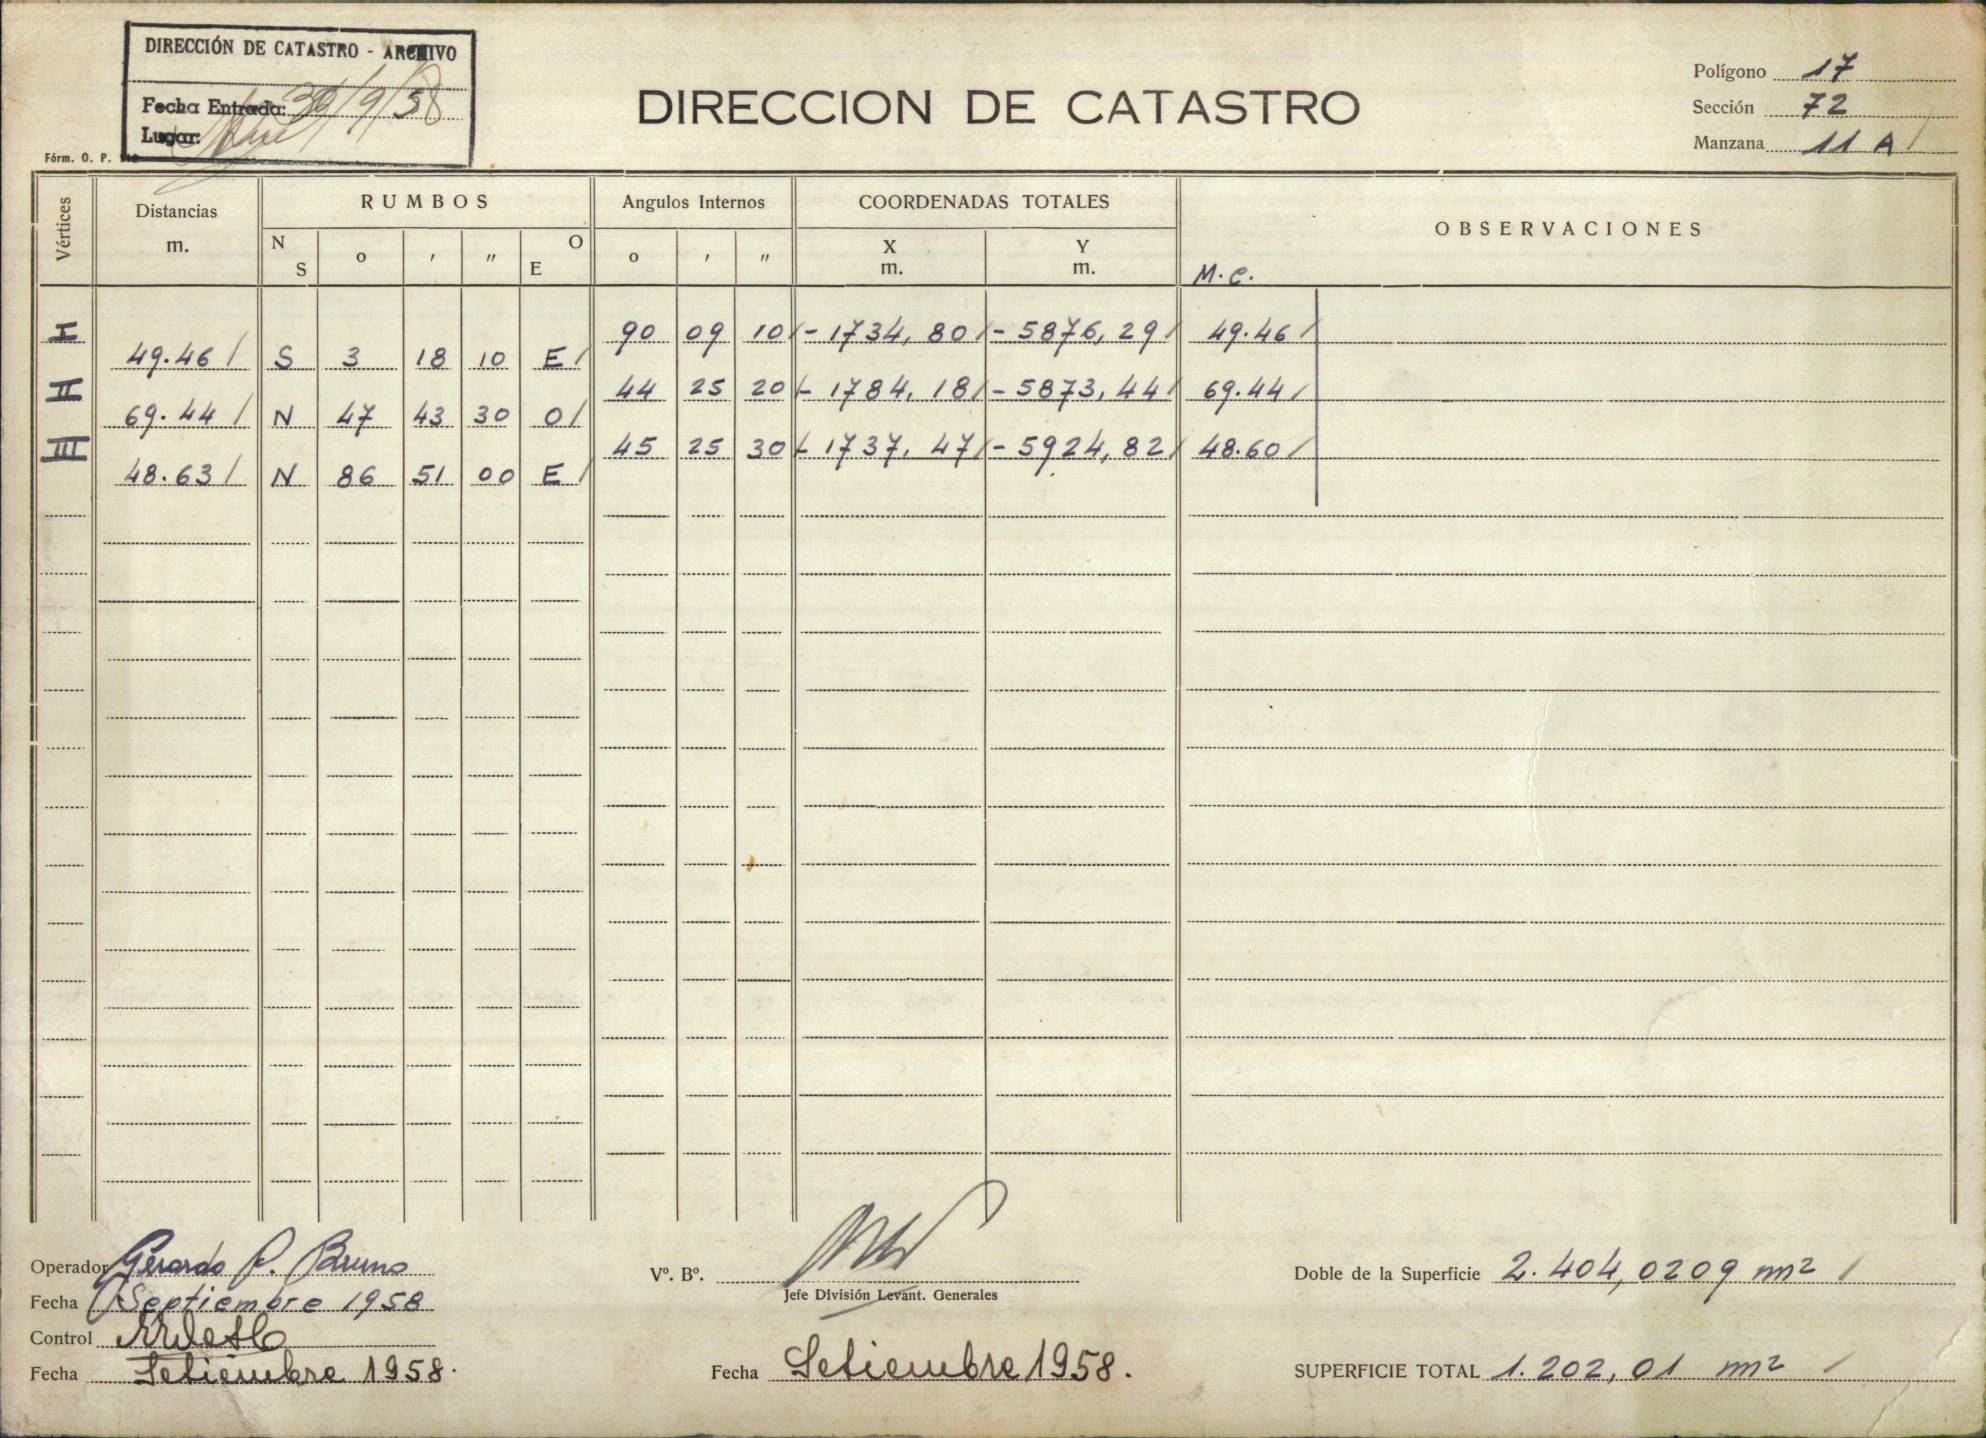 DIRECCIÓN DE CATASTRO - ARCHIVO
Fecha Entrada: 30/9/58
Lugar:
Fórm. O. P.
DIRECCION DE CATASTRO
Polígono 17
Sección 72
Manzana 11 A /
Vértices Distancias m. RUMBOS Angulos Internos COORDENADAS TOTALES OBSERVACIONES
N S o ' " O E o ' " X m. Y m. M.C.
I 90 09 10 / - 1734,80 / - 5876,29 / 49.46 /
49.46 / S 3 18 10 E /
II 44 25 20 / - 1784,18 / - 5873,44 / 69.44 /
69.44 / N 47 43 30 O /
III 45 25 30 / - 1737,47 / - 5924,82 / 48.60 /
48.63 / N 86 51 00 E /
Operador Gerardo P. Bruno
Fecha Septiembre 1958
Control
Fecha Setiembre 1958.
Vº. Bº.
Jefe División Levant. Generales
Fecha Setiembre 1958.
Doble de la Superficie 2.404,0209 m² /
SUPERFICIE TOTAL 1.202,01 m² /